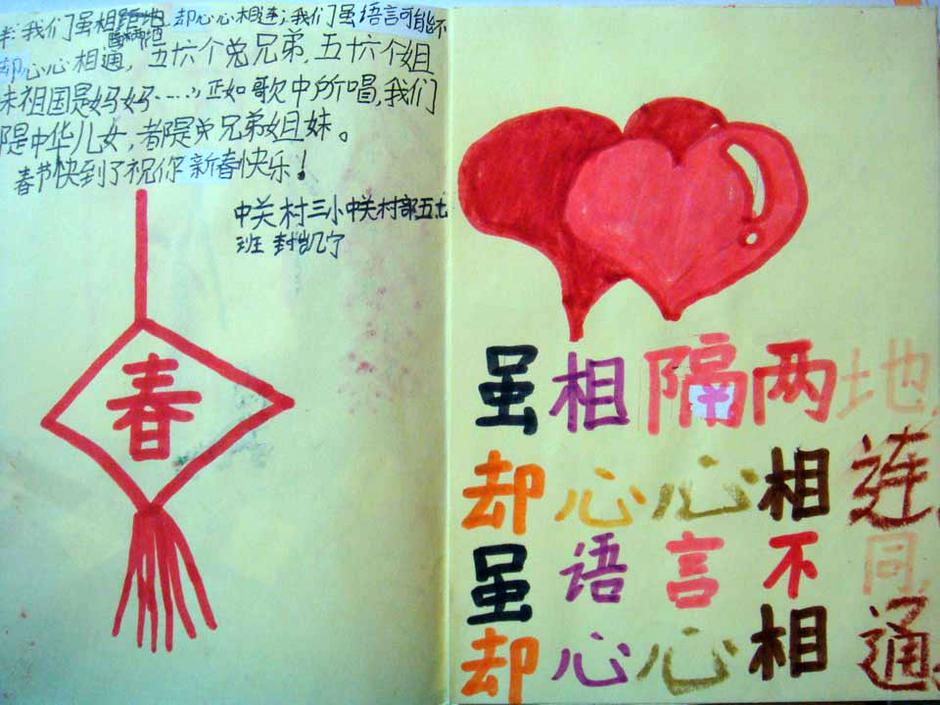 我们虽相隔两地,却心心相连;我们虽语言可能不
却心心相通,五十六个兄弟,五十六个姐
妹祖国是妈妈……,正如歌中所唱,我们
都是中华儿女,都是兄弟姐妹。
春节快到了祝你新春快乐!
中关村三小中关村部五七
班 封凯宁
春
虽相隔两地,
却心心相连
虽语言不同,
却心心相通